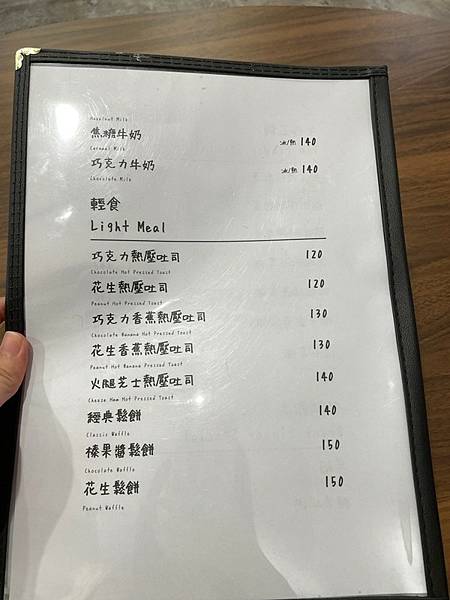 Hazelnut Milk
焦糖牛奶 冰/熱 140
Caramel Milk
巧克力牛奶 冰/熱 140
Chocolate Milk
輕食
Light Meal
巧克力熱壓吐司 120
Chocolate Hot Pressed Toast
花生熱壓吐司 120
Peanut Hot Pressed Toast
巧克力香蕉熱壓吐司 130
Chocolate Banana Hot Pressed Toast
花生香蕉熱壓吐司 130
Peanut Hot Banana Pressed Toast
火腿芝士熱壓吐司 140
Cheese Ham Hot Pressed Toast
經典鬆餅 140
Classic Waffle
榛果醬鬆餅 150
Chocolate Waffle
花生鬆餅 150
Peanut Waffle